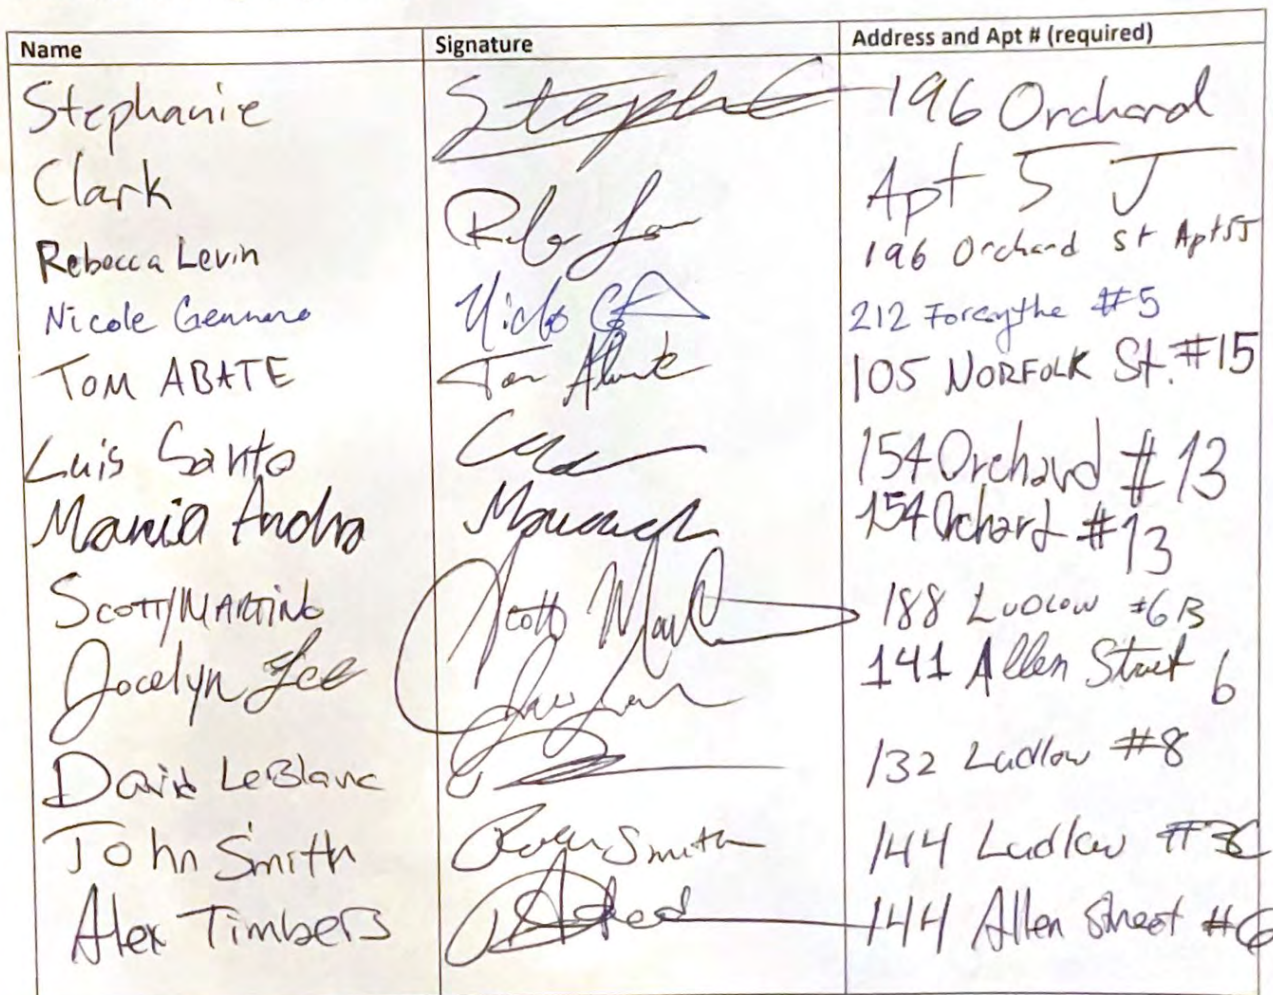 Name Signature Address and Apt # (required)
Stephanie Steph 196 Orchard
Clark Apt 5 J
Rebecca Levin 196 Orchard St Apt 5J
Nicole Gennaro 212 Forsythe #5
TOM ABATE Tom Abate 105 NORFOLK St. #15
Luis Santo 154 Orchard #13
Maria 154 Orchard #13
SCOTT MARTINO Scott 188 LUDLOW #6B
Jocelyn Lee 141 Allen Street 6
David LeBlanc 132 Ludlow #8
John Smith Smith 144 Ludlow #3C
Alex Timbers 144 Allen Street #6